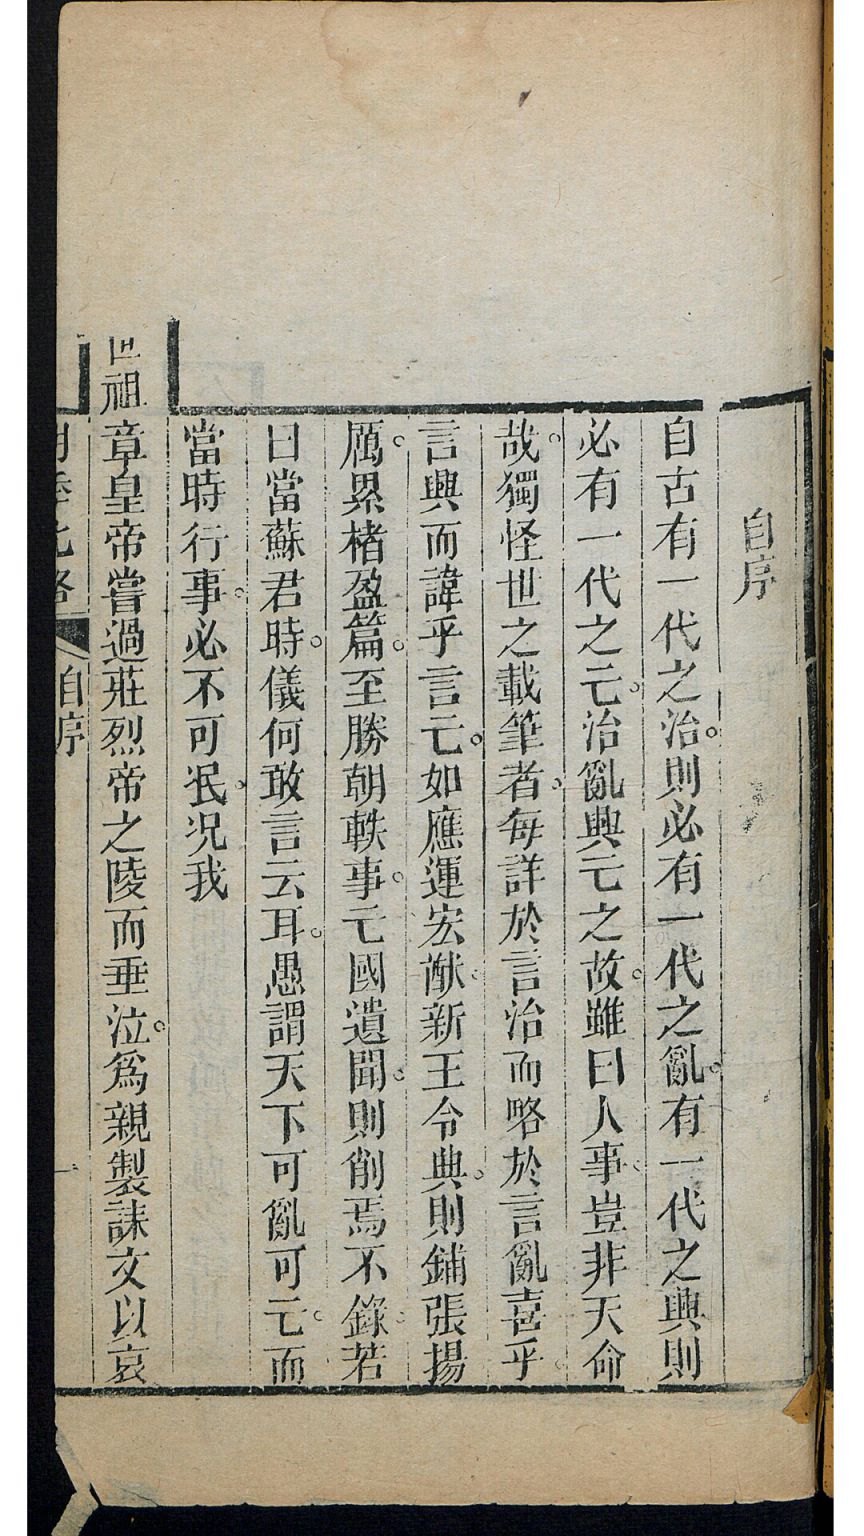 自序
自古有一代之治。則必有一代之亂。有一代之興則
必有一代之亡。治亂興亡之故。雖曰人事。豈非天命
哉。獨怪世之載筆者。每詳於言治而略於言亂喜乎。
言興而諱乎言亡。如應運宏猷。新王令典。則鋪張揚
厲。累楮盈篇。至勝朝軼事。亡國遺聞。則削焉不錄。若
曰當蘇君時。儀何敢言云耳。愚謂天下可亂可亡。而
當時行事。必不可泯。况我
世祖章皇帝嘗過莊烈帝之陵而垂泣。爲親製誄文以哀
明季北略 自序